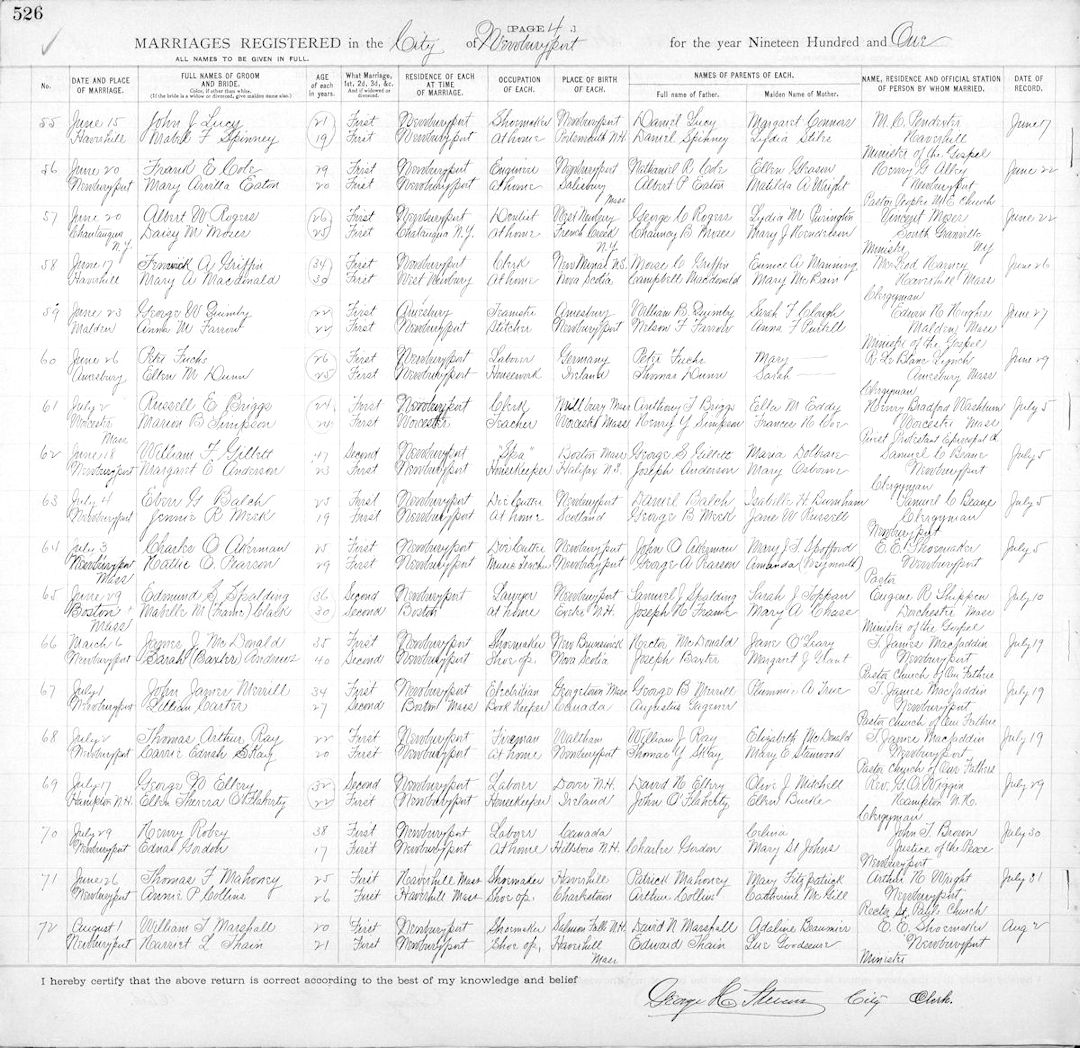 526
[PAGE 4.]
MARRIAGES REGISTERED in the City of Newburyport for the year Nineteen Hundred and One
ALL NAMES TO BE GIVEN IN FULL.
No. DATE AND PLACE OF MARRIAGE. FULL NAMES OF GROOM AND BRIDE. Color, if other than white. (If the bride is a widow or divorced, give maiden name also.) AGE of each in years. What Marriage, 1st, 2d, 3d, &c. And if widowed or divorced. RESIDENCE OF EACH AT TIME OF MARRIAGE. OCCUPATION OF EACH. PLACE OF BIRTH OF EACH. NAMES OF PARENTS OF EACH. Full name of Father. Maiden Name of Mother. NAME, RESIDENCE AND OFFICIAL STATION OF PERSON BY WHOM MARRIED. DATE OF RECORD.
55 June 15 John J Lucy 21 First Newburyport Shoemaker Newburyport Daniel Lucy Margaret Connors June 17
Haverhill Mabel F Spinney 19 First Newburyport At home Portsmouth N.H. Daniel Spinney Lydia Haverhill
Minister of the Gospel
56 June 20 Frank E Cole 29 First Newburyport Engineer Newburyport Nathaniel R Cole Ellen Henry G Newburyport June 22
Newburyport Mary Eaton 20 First Newburyport At home Salisbury Mass Albert P Eaton Matilda A Wright
Pastor Peoples M E Church
57 June 20 Albert W Rogers 26 First Newburyport Dentist West Newbury George C Rogers Lydia M Purington Vincent Moses June 22
Chautauqua N.Y. Daisy M Moses 25 First Chatauqua N.Y. At home French Creek N.Y. Chauncy B Moses Mary J Henderson South Granville N.Y.
Minister
58 June 17 Fenwick A Griffin 34 First Newburyport Clerk New Minas N.S. Moise C Griffin Eunice A Manning June 26
Haverhill Mary A Macdonald 30 First West Newbury At home Nova Scotia Campbell Macdonald Mary McBain Haverhill Mass
Clergyman
59 June 23 George W Quimby 22 First Amesbury Teamster Amesbury William B Quimby Sarah F Clough Edwin H Hughes June 27
Malden Anna M Farrow 22 First Newburyport Stitcher Newburyport Nelson F Farrow Anna F Malden Mass
Minister of the Gospel
60 June 26 Peter Fuchs 26 First Newburyport Laborer Germany Peter Fuchs Mary — June 29
Amesbury Ellen M Dunn 25 First Newburyport Housework Ireland Thomas Dunn Sarah — Amesbury Mass
Clergyman
61 July 2 Russell E Briggs 24 First Newburyport Clerk Anthony T Briggs Ella M Eddy Henry Bradford Washburn July 5
Worcester Mass Marien B Simpson 24 First Worcester Teacher Worcester Mass Henry Y Simpson Frances H Coe Worcester Mass
Priest Protestant Episcopal
62 June 18 William F Gillett 47 Second Newburyport Boston Mass George S Gillett Maria Samuel C Beane July 5
Newburyport Margaret E Anderson 23 First Newburyport Housekeeper Halifax N.S. Joseph Anderson Mary Osborne Newburyport
Clergyman
63 July 4 Eben G Balch 25 First Newburyport Die Cutter Newburyport Daniel Balch Isabelle H Burnham Samuel C Beane July 5
Newburyport Jennie R Meek 19 First Newburyport At home Scotland George B Meek Jane W Russell Clergyman
Newburyport
64 July 3 Charles O Akerman 25 First Newburyport Die Cutter Newburyport John O Akerman Mary J F Spofford E. E. Shoemaker July 5
Newburyport Mass Hattie E Pearson 29 First Newburyport Music Teacher Newburyport George A Pearson Amanda (Weymouth) Newburyport
Pastor
65 June 29 Edmund S Spalding 36 Second Newburyport Lawyer Newburyport Samuel J Spalding Sarah J Toppan Eugene R Shippen July 10
Boston Mass Mabelle M (Frame) Clark 30 Second Boston At home Exeter N.H. Joseph H Frame Mary A Chase Dorchester Mass
Minister of the Gospel
66 March 6 James J McDonald 35 First Newburyport Shoemaker New Brunswick Hector McDonald Jane O'Leary T. James Macfaddin July 19
Newburyport Sarah (Baxter) Andrews 40 Second Newburyport Shoe op. Nova Scotia Joseph Baxter Margaret J Newburyport
Pastor Church of Our Fathers
67 July 1 John James Merrill 34 First Newburyport Electrician Georgetown Mass George B Merrill Plummie A True T. James Macfaddin July 19
Newburyport Lillian Carter 27 Second Boston Mass Book Keeper Canada Augustus Newburyport
Pastor Church of Our Fathers
68 July 2 Thomas Arthur Ray 22 First Newburyport Fireman Waltham William J Ray Elizabeth McDonald T. James Macfaddin July 19
Newburyport Carrie Ednah 20 First Newburyport At home Newburyport Thomas Y Mary E Stanwood Newburyport
Pastor Church of Our Fathers
69 July 17 George W Elkry 32 Second Newburyport Laborer Dover N.H. David H Elkry Olive J Mitchell Rev. G. O. Wiggin July 29
Hampton N.H. Ellen Theresa O'Flaherty 22 First Newburyport Housekeeper Ireland John O'Flaherty Ellen Burke Hampton N.H.
Clergyman
70 July 29 Henry Robey 38 First Newburyport Laborer Canada Celina John T. Brown July 30
Newburyport Edna Gordon 17 First Newburyport At home Hillsboro N.H. Charles Gordon Mary St Johns Justice of the Peace
Newburyport
71 June 26 Thomas F Mahoney 25 First Haverhill Mass Shoemaker Haverhill Patrick Mahoney Mary Fitzpatrick Arthur H Wright July 31
Newburyport Annie P Collins 26 First Haverhill Mass Shoe op. Charlestown Arthur Collins Catherine McGill Newburyport
Rector St. Pauls Church
72 August 1 William T Marshall 20 First Newburyport Shoemaker Salmon Falls N.H. David N Marshall Adaline E. E. Shoemaker Aug 2
Newburyport Harriet L Thain 21 First Newburyport Shoe op. Haverhill Mass Edward Thain Newburyport
Minister
I hereby certify that the above return is correct according to the best of my knowledge and belief
George H. Stevens City Clerk.